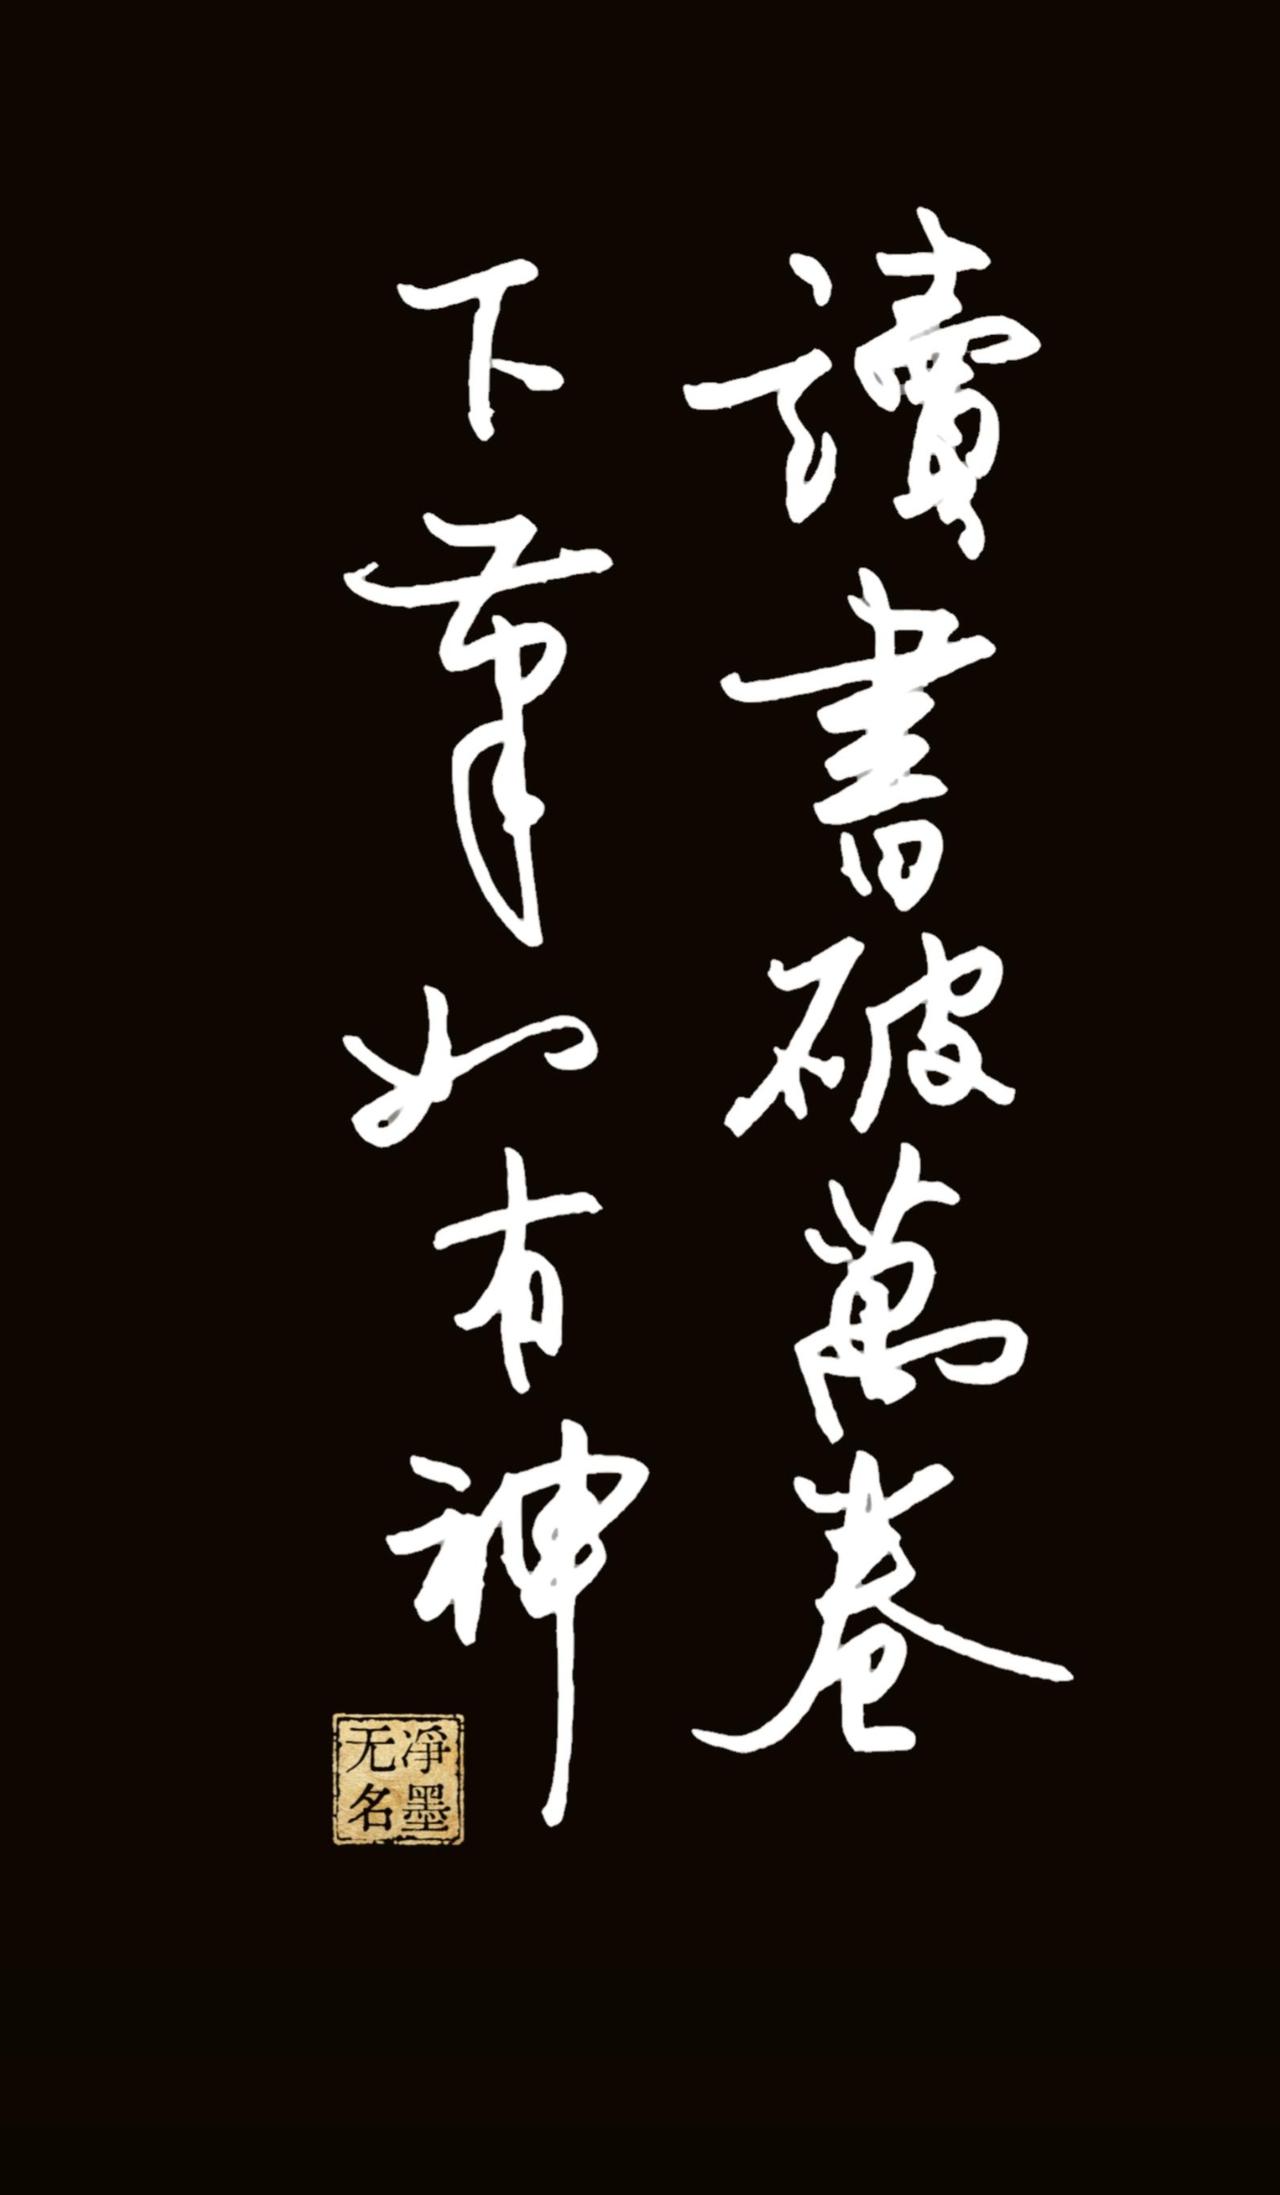 讀書破萬卷
下筆如有神
净墨
无名